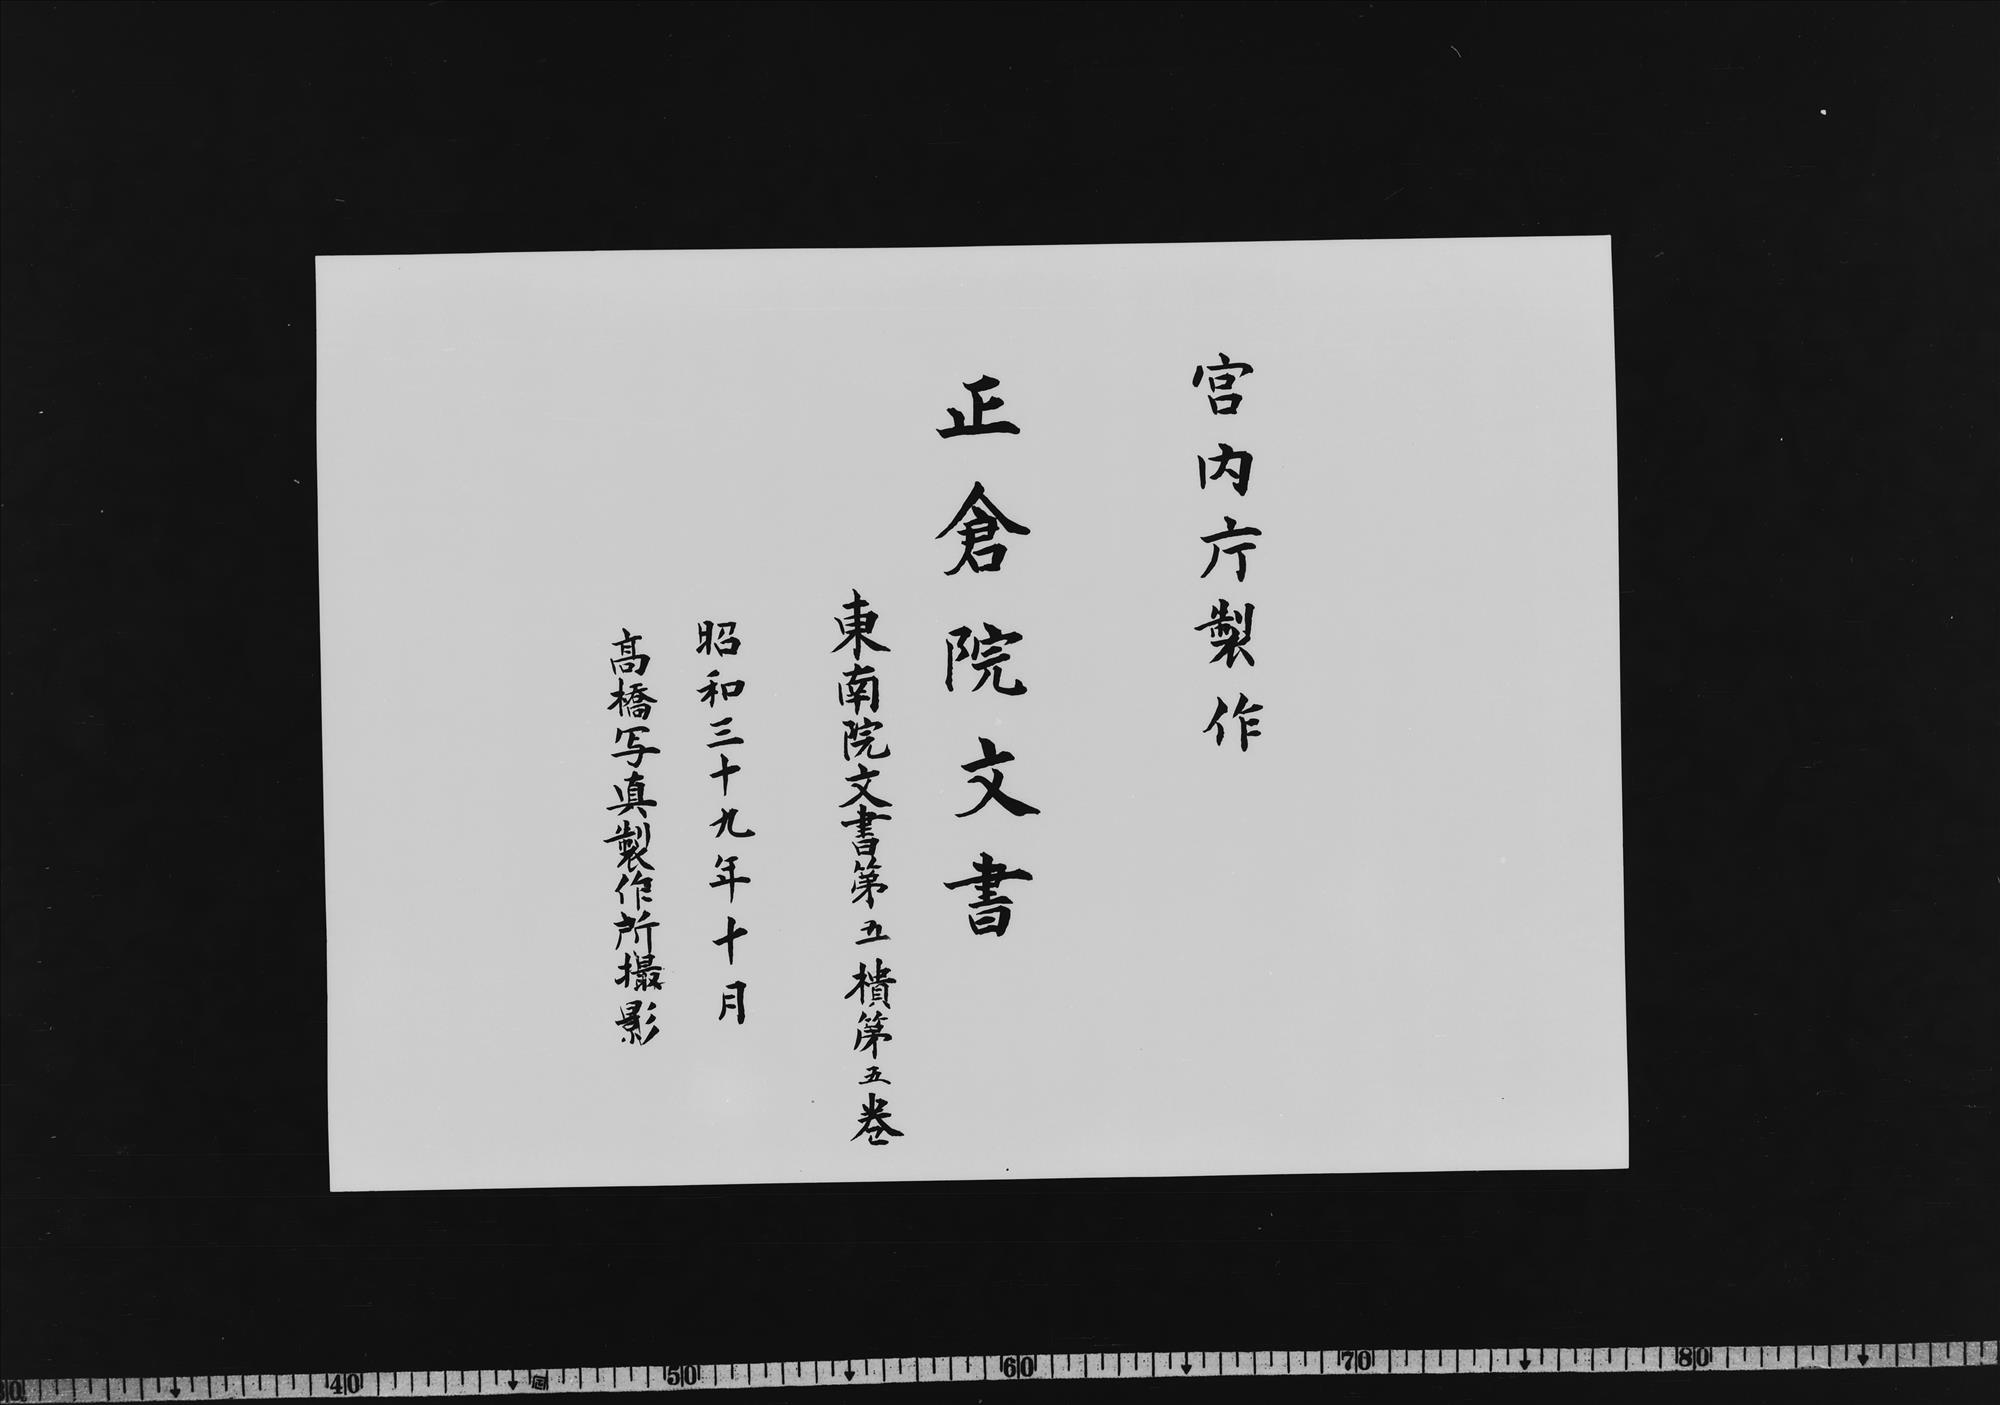 宮内庁製作
正倉院文書
東南院文書第五櫃第五巻
昭和三十九年十月
高橋写真製作所撮影
40 50 60 70 80